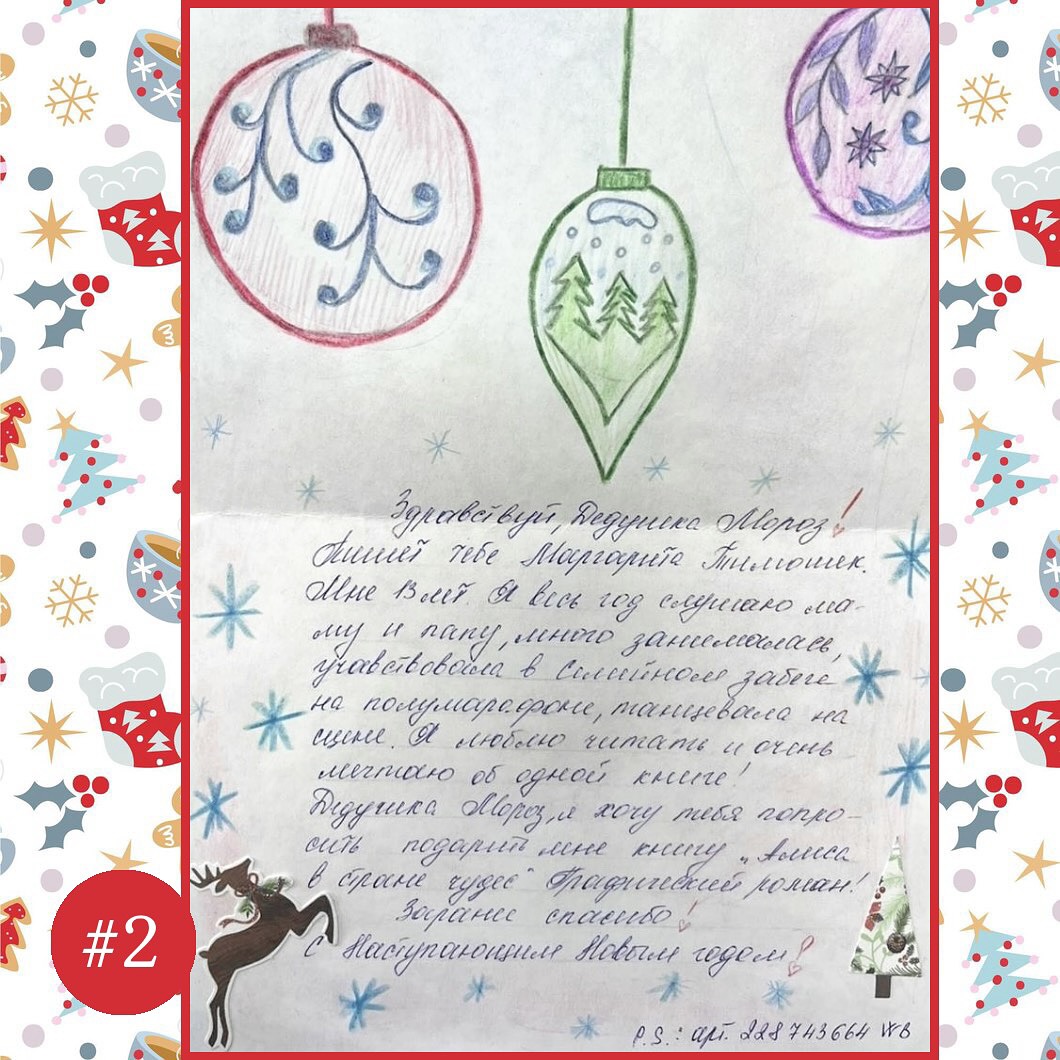 Здравствуй, Дедушка Мороз!
Пишет тебе Маргарита Тимошек.
Мне 13 лет. Я весь год слушаю ма-
му и папу, много занималась,
учавствовала в Семейном забеге
на полумарафоне, танцевала на
сцене. Я люблю читать и очень
мечтаю об одной книге!
Дедушка Мороз, я хочу тебя попро-
сить подарить мне книгу „Алиса
в стране чудес" Графический роман!
Заранее спасибо!
С Наступающим Новым годом!
P.S.: арт. 228743664 WB
#2